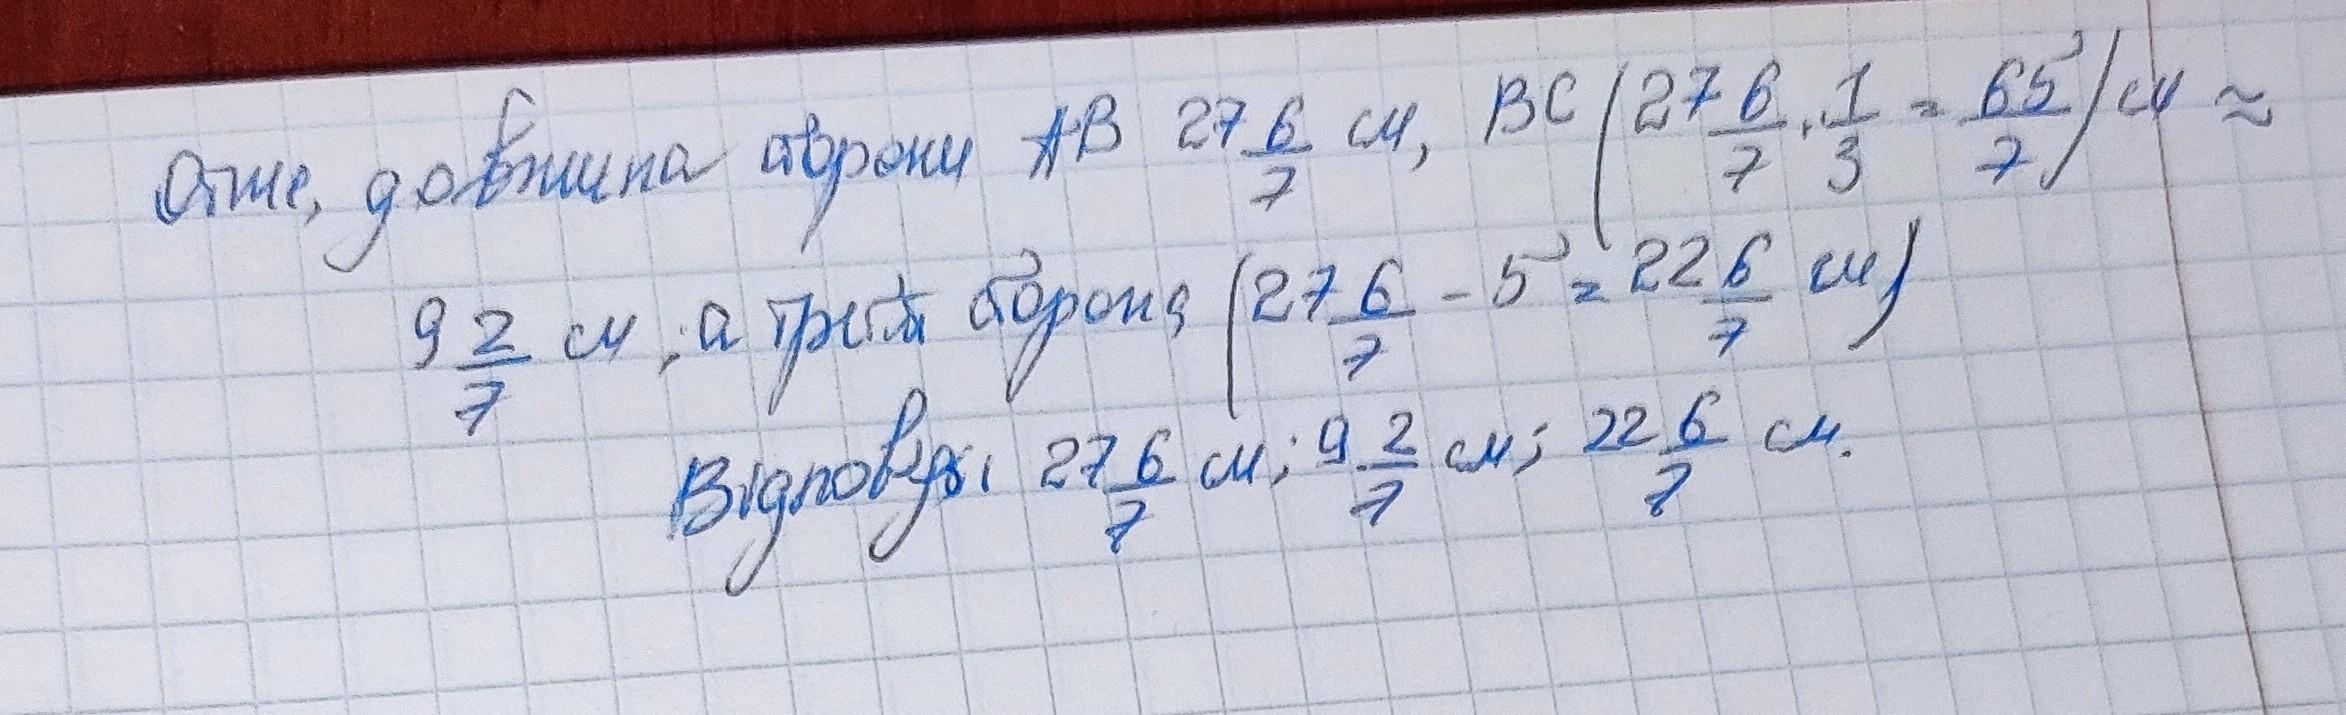 Отже, довжина сторони AB 27 6/7 см, BC (27 6/7 · 1/3 = 65/7) см ≈
9 2/7 см, а третя сторона (27 6/7 - 5 = 22 6/7 см)
Відповідь: 27 6/7 см; 9 2/7 см; 22 6/7 см.